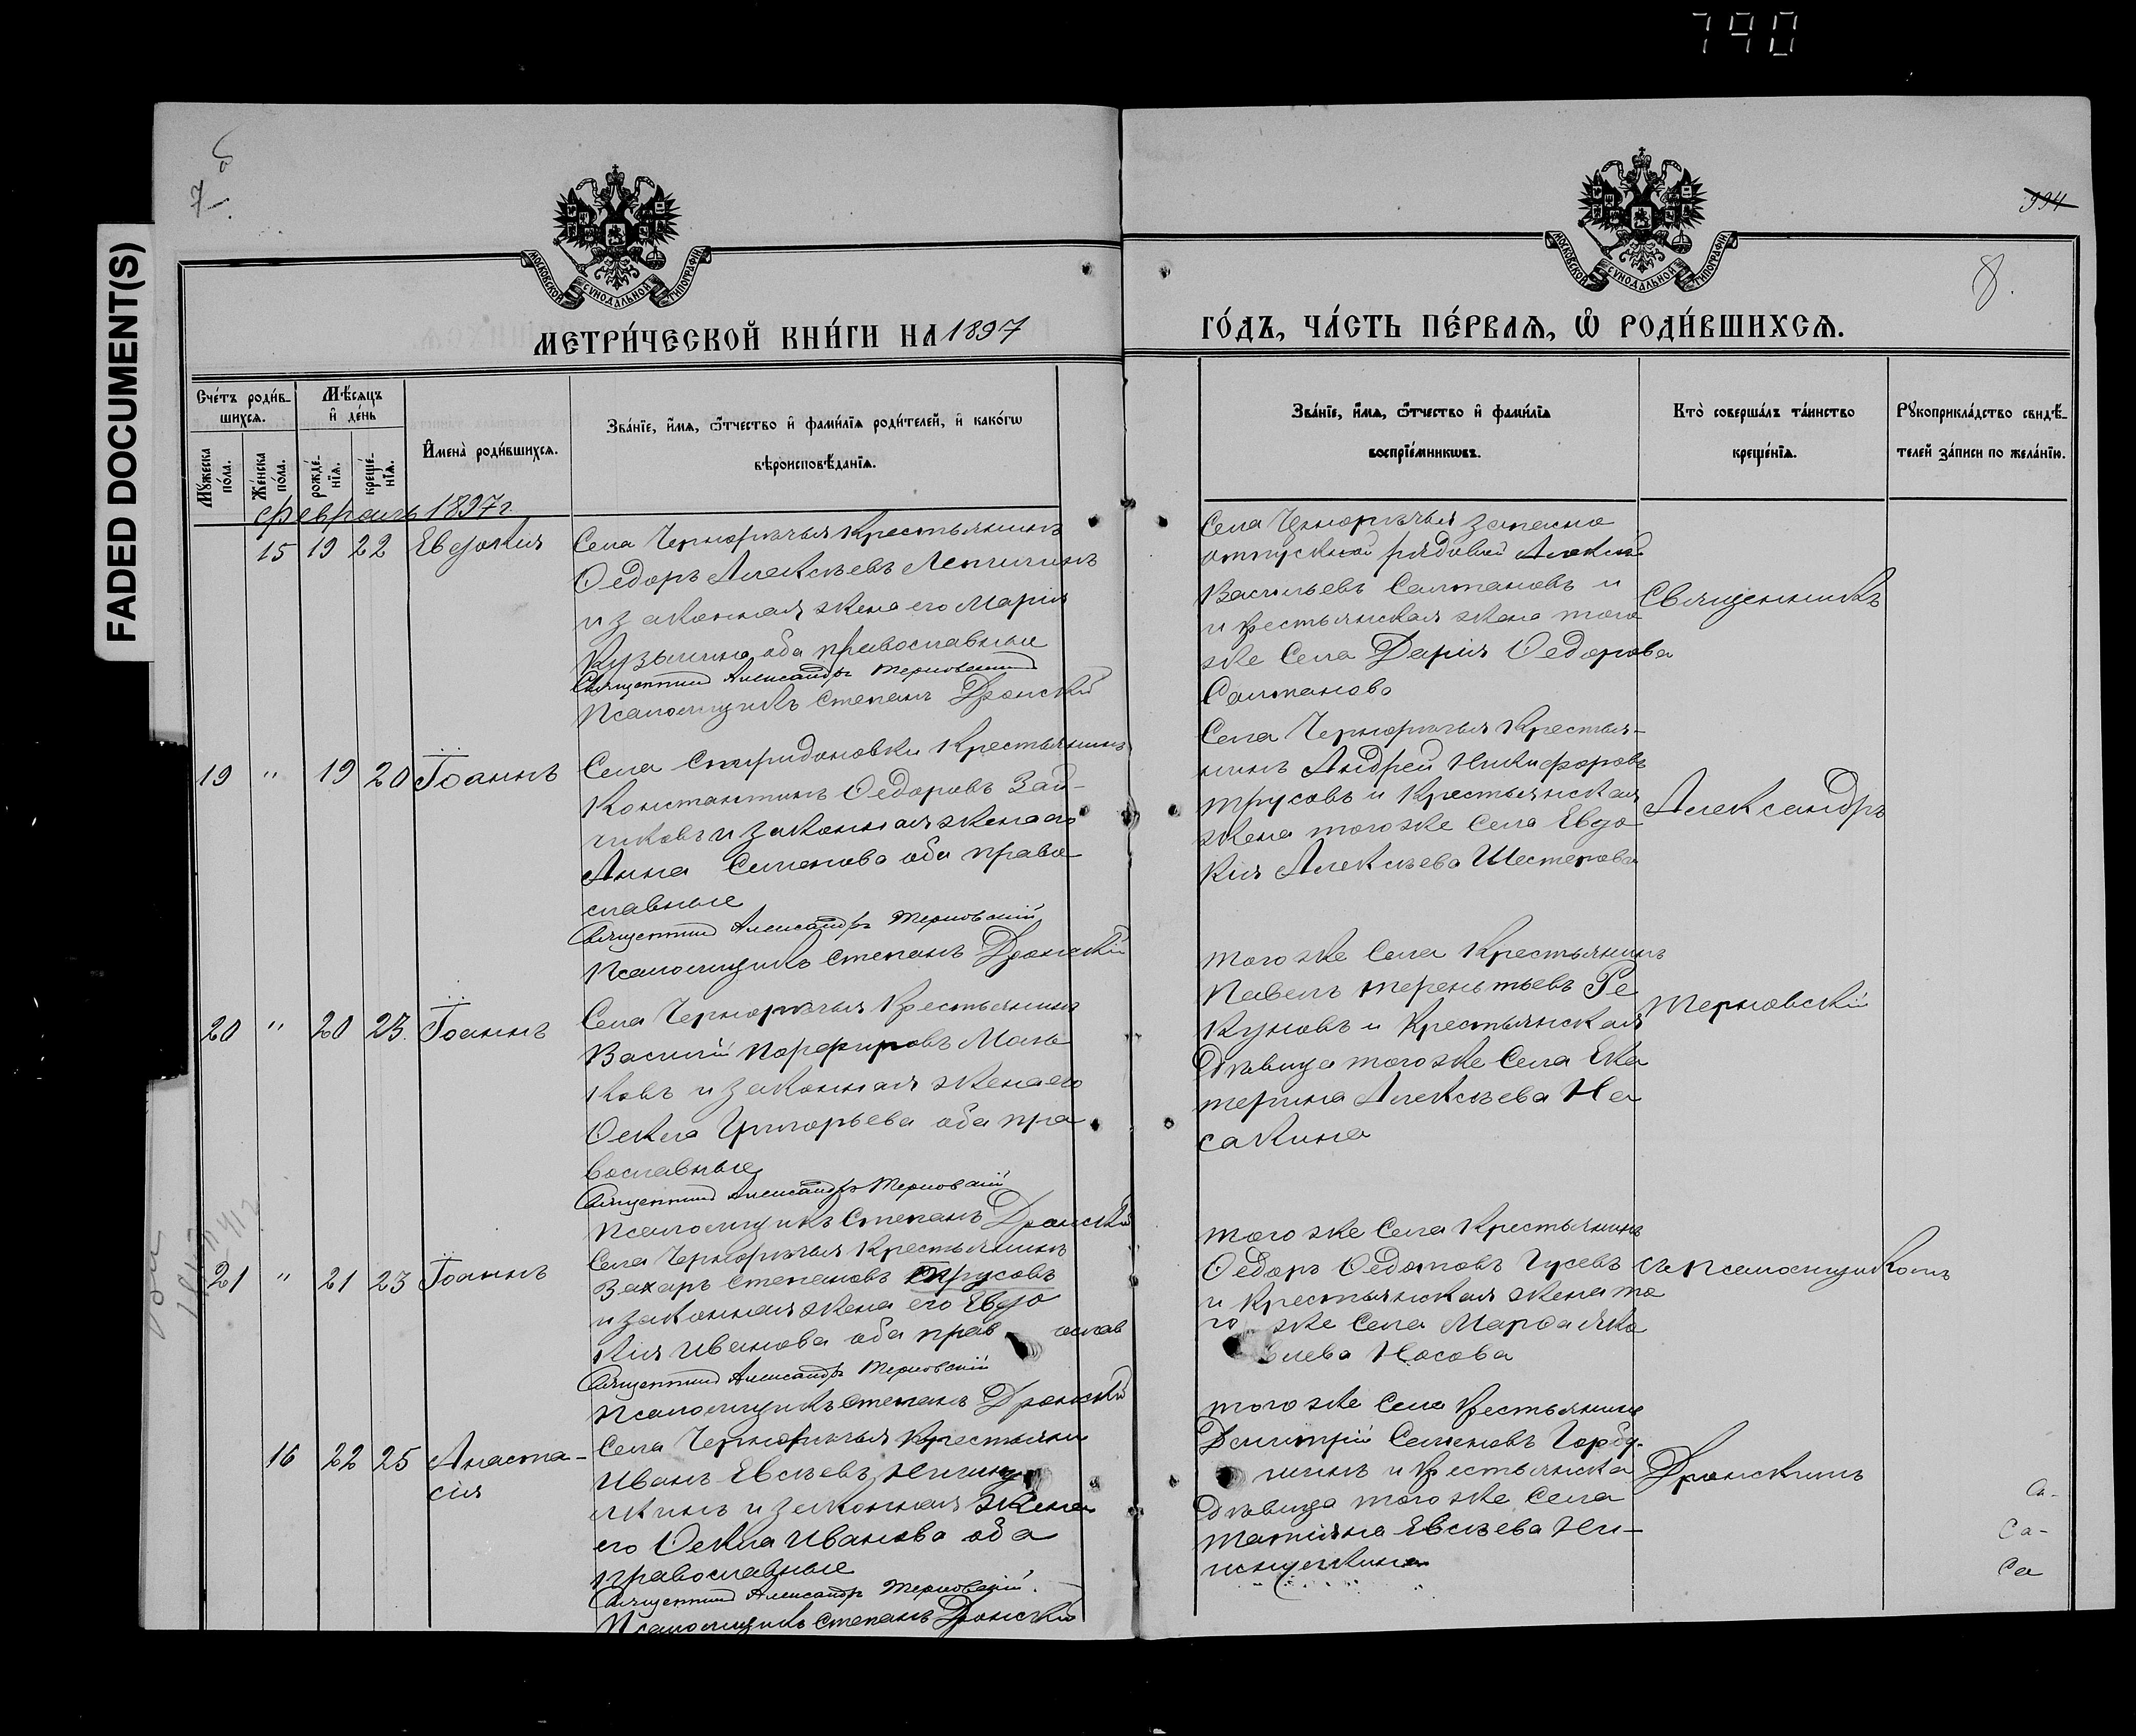 790
FADED DOCUMENT(S)
7
994
8.
МОСКОВСКОЙ СѴНОДАЛЬНОЙ ТИПОГРАФІИ
МОСКОВСКОЙ СѴНОДАЛЬНОЙ ТИПОГРАФІИ
МЕТРИ́ЧЕСКОЙ КНИ́ГИ НА 1897
ГО́ДЪ, ЧА́СТЬ ПЕ́РВАѦ, Ѽ РОДИ́ВШИХСѦ.
Счéтъ роди́в-
шихсѧ.
Мѣ́сѧцъ
и҆ дéнь
Мꙋ́жеска
пóла.
Жéнска
пóла.
рождé-
нїѧ.
крещé-
нїѧ.
И҆менà роди́вшихсѧ.
Звáнїе, и҆́мѧ, ѻ҆́тчество и҆ фами́лїѧ роди́телей, и҆ какóгѡ
вѣроисповѣ́данїѧ.
Звáнїе, и҆́мѧ, ѻ҆́тчество и҆ фами́лїѧ
воспрїе́мникѡвъ.
Кто̀ совершáлъ тáинство
крещéнїѧ.
Рꙋкоприклáдство свидѣ́-
телей зáписи по желáнїю.
Февраль 1897 г.
15 19 22 Евдокия
Села Черноречья Крестьянинъ
Ѳедоръ Алексѣевъ Лепилинъ
и законная жена его Марія
Кузьмина оба православные
Священникъ Александръ Терновский
Псаломщикъ Степанъ Дронский
Села Черноречья запасно
отпускной рядовой Алексей
Васильевъ Салтановъ и
и крестьянская жена того
же Села Дарія Ѳедорова
Салтанова
Священникъ
19 " 19 20 Іоаннъ
Села Спиридоновки Крестьянинъ
Константинъ Ѳедоровъ Зай-
чиковъ и законная жена его
Анна Семенова оба право
славные
Священникъ Александръ Терновскій
Псаломщикъ Степанъ Дронскій
Села Черноречья Крестья-
нинъ Андрей Никифоровъ
Трусовъ и Крестьянская
жена того же Села Евдо
кия Алексѣева Шестерова
Александръ
20 " 20 23 Іоаннъ
Села Черноречья Крестьянинъ
Василій Порфировъ Мань
ковъ и законная жена его
Ѳекла Григорьева оба пра
вославные
Священникъ Александръ Терновскій
Псаломщикъ Степанъ Дронский
того же Села Крестьянинъ
Павелъ Терентьевъ Ре
куновъ и Крестьянская
Дѣвица того же Села Ека
терина Алексѣева На
сакина
Терновскій
21 " 21 23 Іоаннъ
Села Черноречья Крестьянинъ
Захаръ Степановъ Трусовъ
и законная жена его Евдо
кия Иванова оба прав ослав
Священникъ Александръ Терновскій
Псаломщикъ Степанъ Дронский
того же Села Крестьянинъ
Ѳедоръ Ѳедотовъ Гусевъ
и Крестьянская жена то
го же Села Марѳа Яко
влева Носова
съ Псаломщикомъ
16 22 25 Анаста-
сия
Села Черноречья Крестьяни
Иванъ Евсѣевъ
и законная жена
его Ѳекла Иванова оба
православные
Священникъ Александръ Терновскій.
Псаломщикъ Степанъ Дронский
того же Села Крестьянинъ
Димитрій Семеновъ Горбу-
шинъ и Крестьянска
Дѣвица того же Села
Татіяна Евсѣева Ни-
Дронскимъ
Са-
Са-
Са